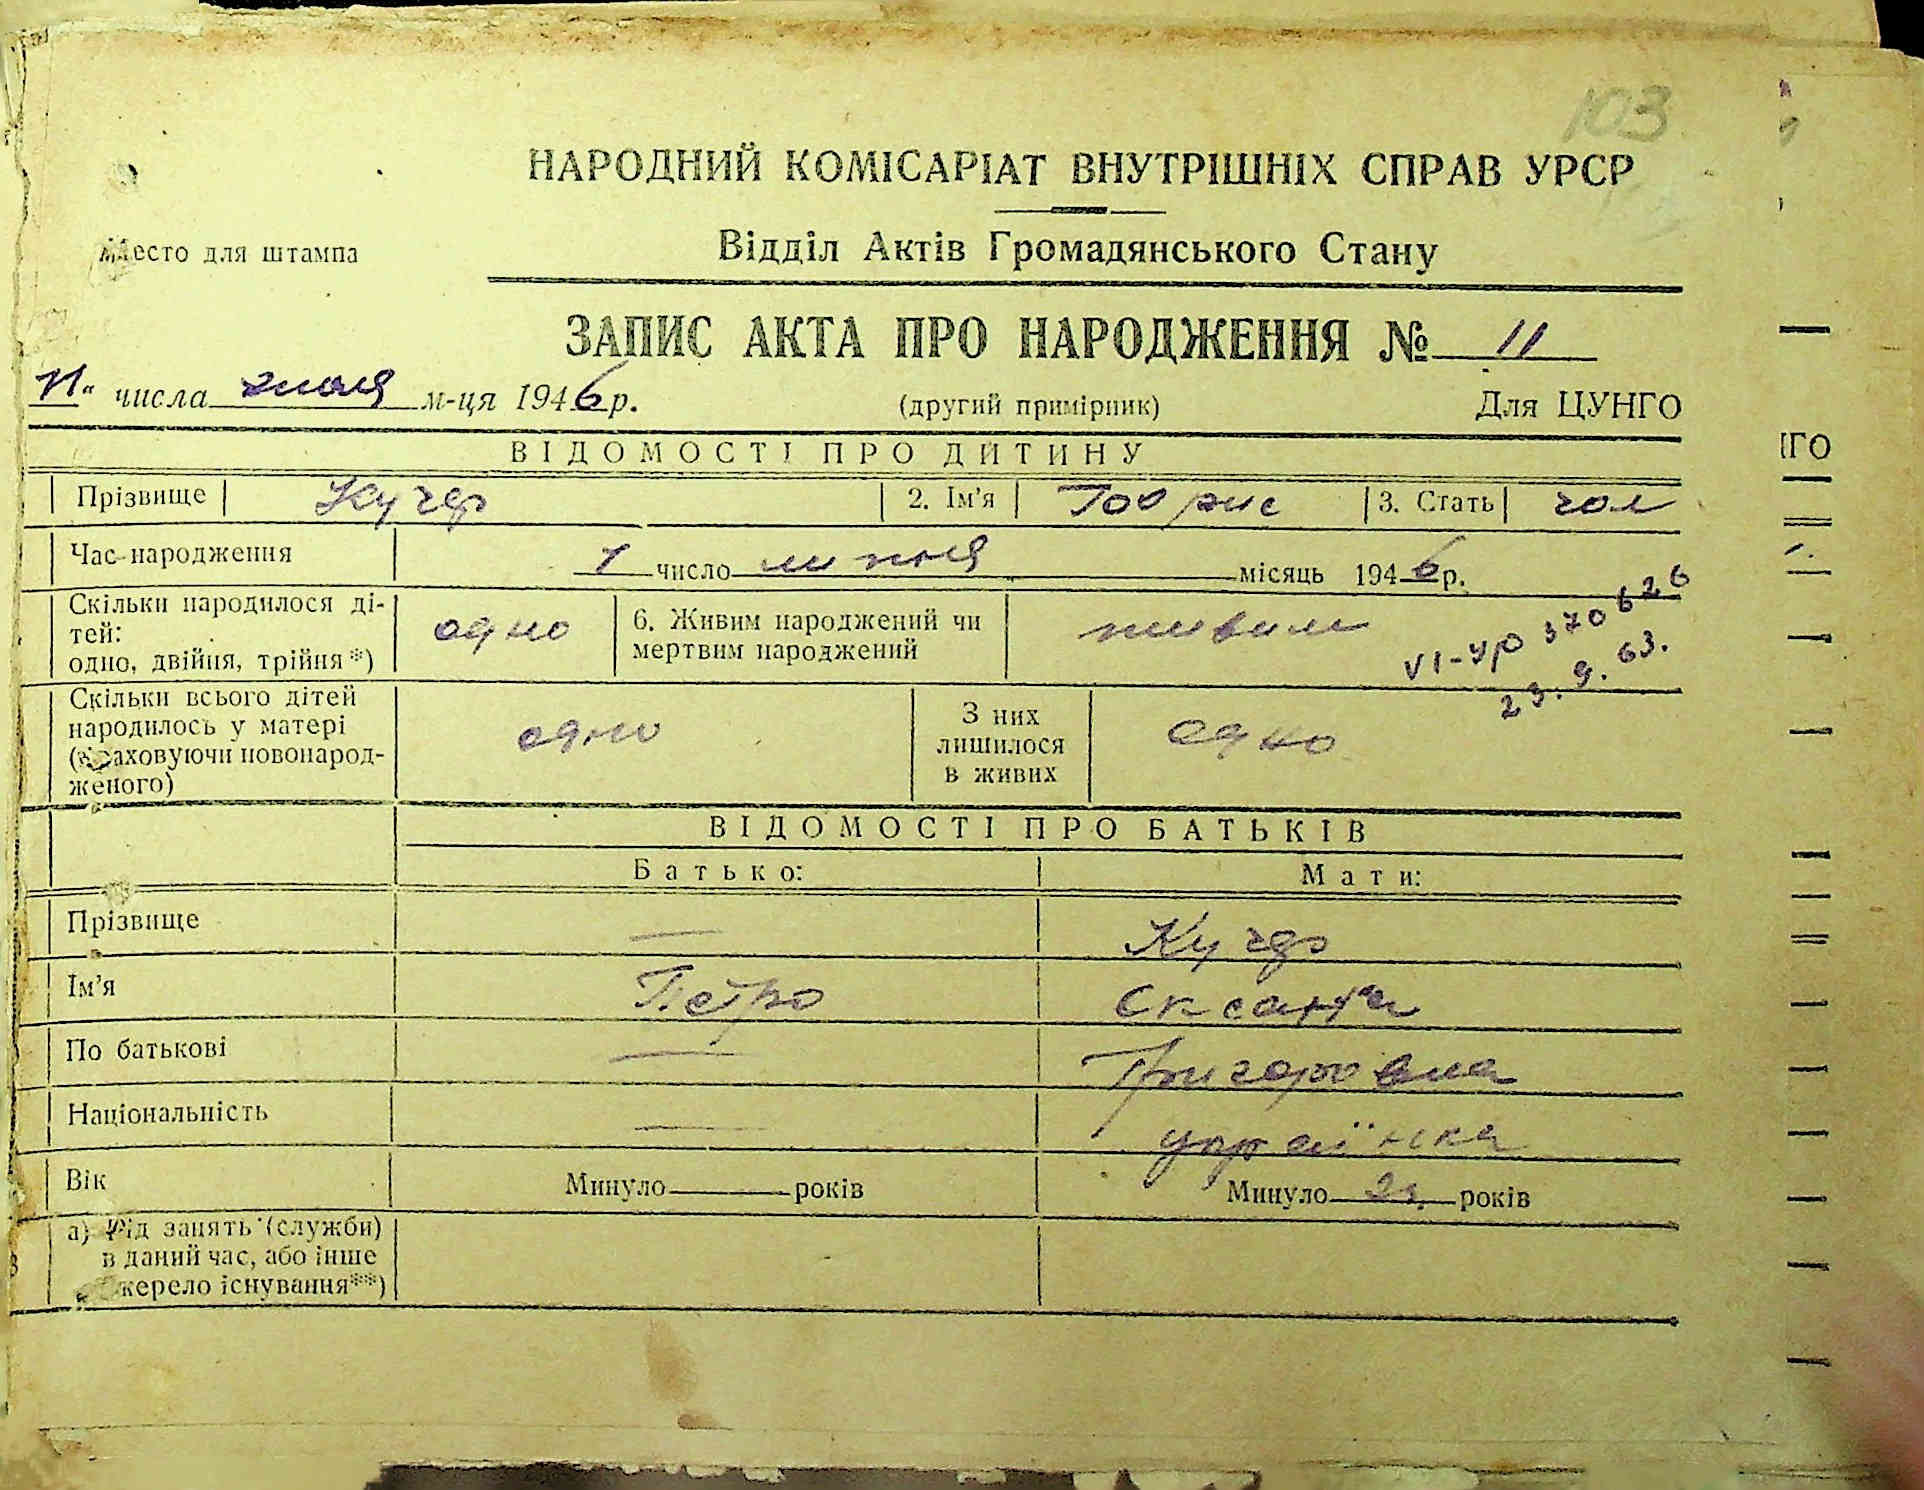 103
НАРОДНИЙ КОМІСАРІАТ ВНУТРІШНІХ СПРАВ УРСР
Место для штампа
Відділ Актів Громадянського Стану
ЗАПИС АКТА ПРО НАРОДЖЕННЯ № 11
11" числа июля м-ця 1946 р.
(другий примірник)
Для ЦУНГО
ІГО
ВІДОМОСТІ ПРО ДИТИНУ
Прізвище Кучер 2. Ім'я 3. Стать чол
Час народження 1 число липня місяць 1946 р.
Скільки народилося ді-
тей:
одно, двійня, трійня*)
одно
6. Живим народжений чи
мертвим народжений
живим
VI-УР 370626
23.9.63.
Скільки всього дітей
народилось у матері
(враховуючи новонарод-
женого)
одно
З них
лишилося
в живих
одно
ВІДОМОСТІ ПРО БАТЬКІВ
Батько: Мати:
Прізвище — Кучер
Ім'я Петро Оксанта
По батькові — Григоровна
Національність — українка
Вік Минуло — років Минуло років
а) Рід занять (служби)
в даний час, або інше
жерело існування**)